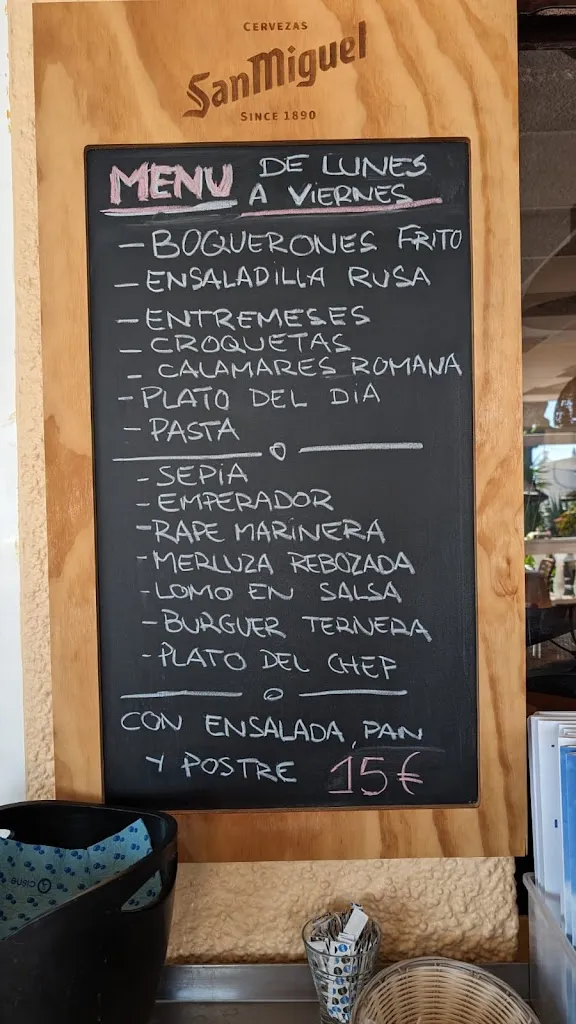 CERVEZAS
San Miguel
SINCE 1890
MENU DE LUNES
A VIERNES
- BOQUERONES FRITO
- ENSALADILLA RUSA
- ENTREMESES
- CROQUETAS
- CALAMARES ROMANA
- PLATO DEL DIA
- PASTA
- SEPIA
- EMPERADOR
- RAPE MARINERA
- MERLUZA REBOZADA
- LOMO EN SALSA
- BURGUER TERNERA
- PLATO DEL CHEF
CON ENSALADA, PAN
Y POSTRE 15€